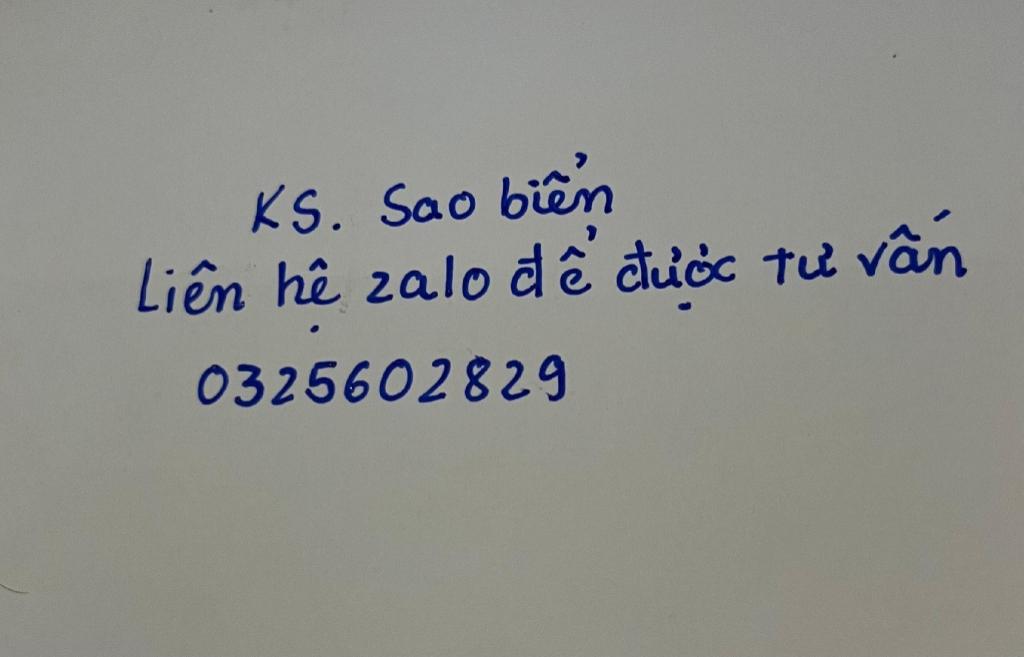 KS. Sao biển
Liên hệ zalo để được tư vấn
0325602829